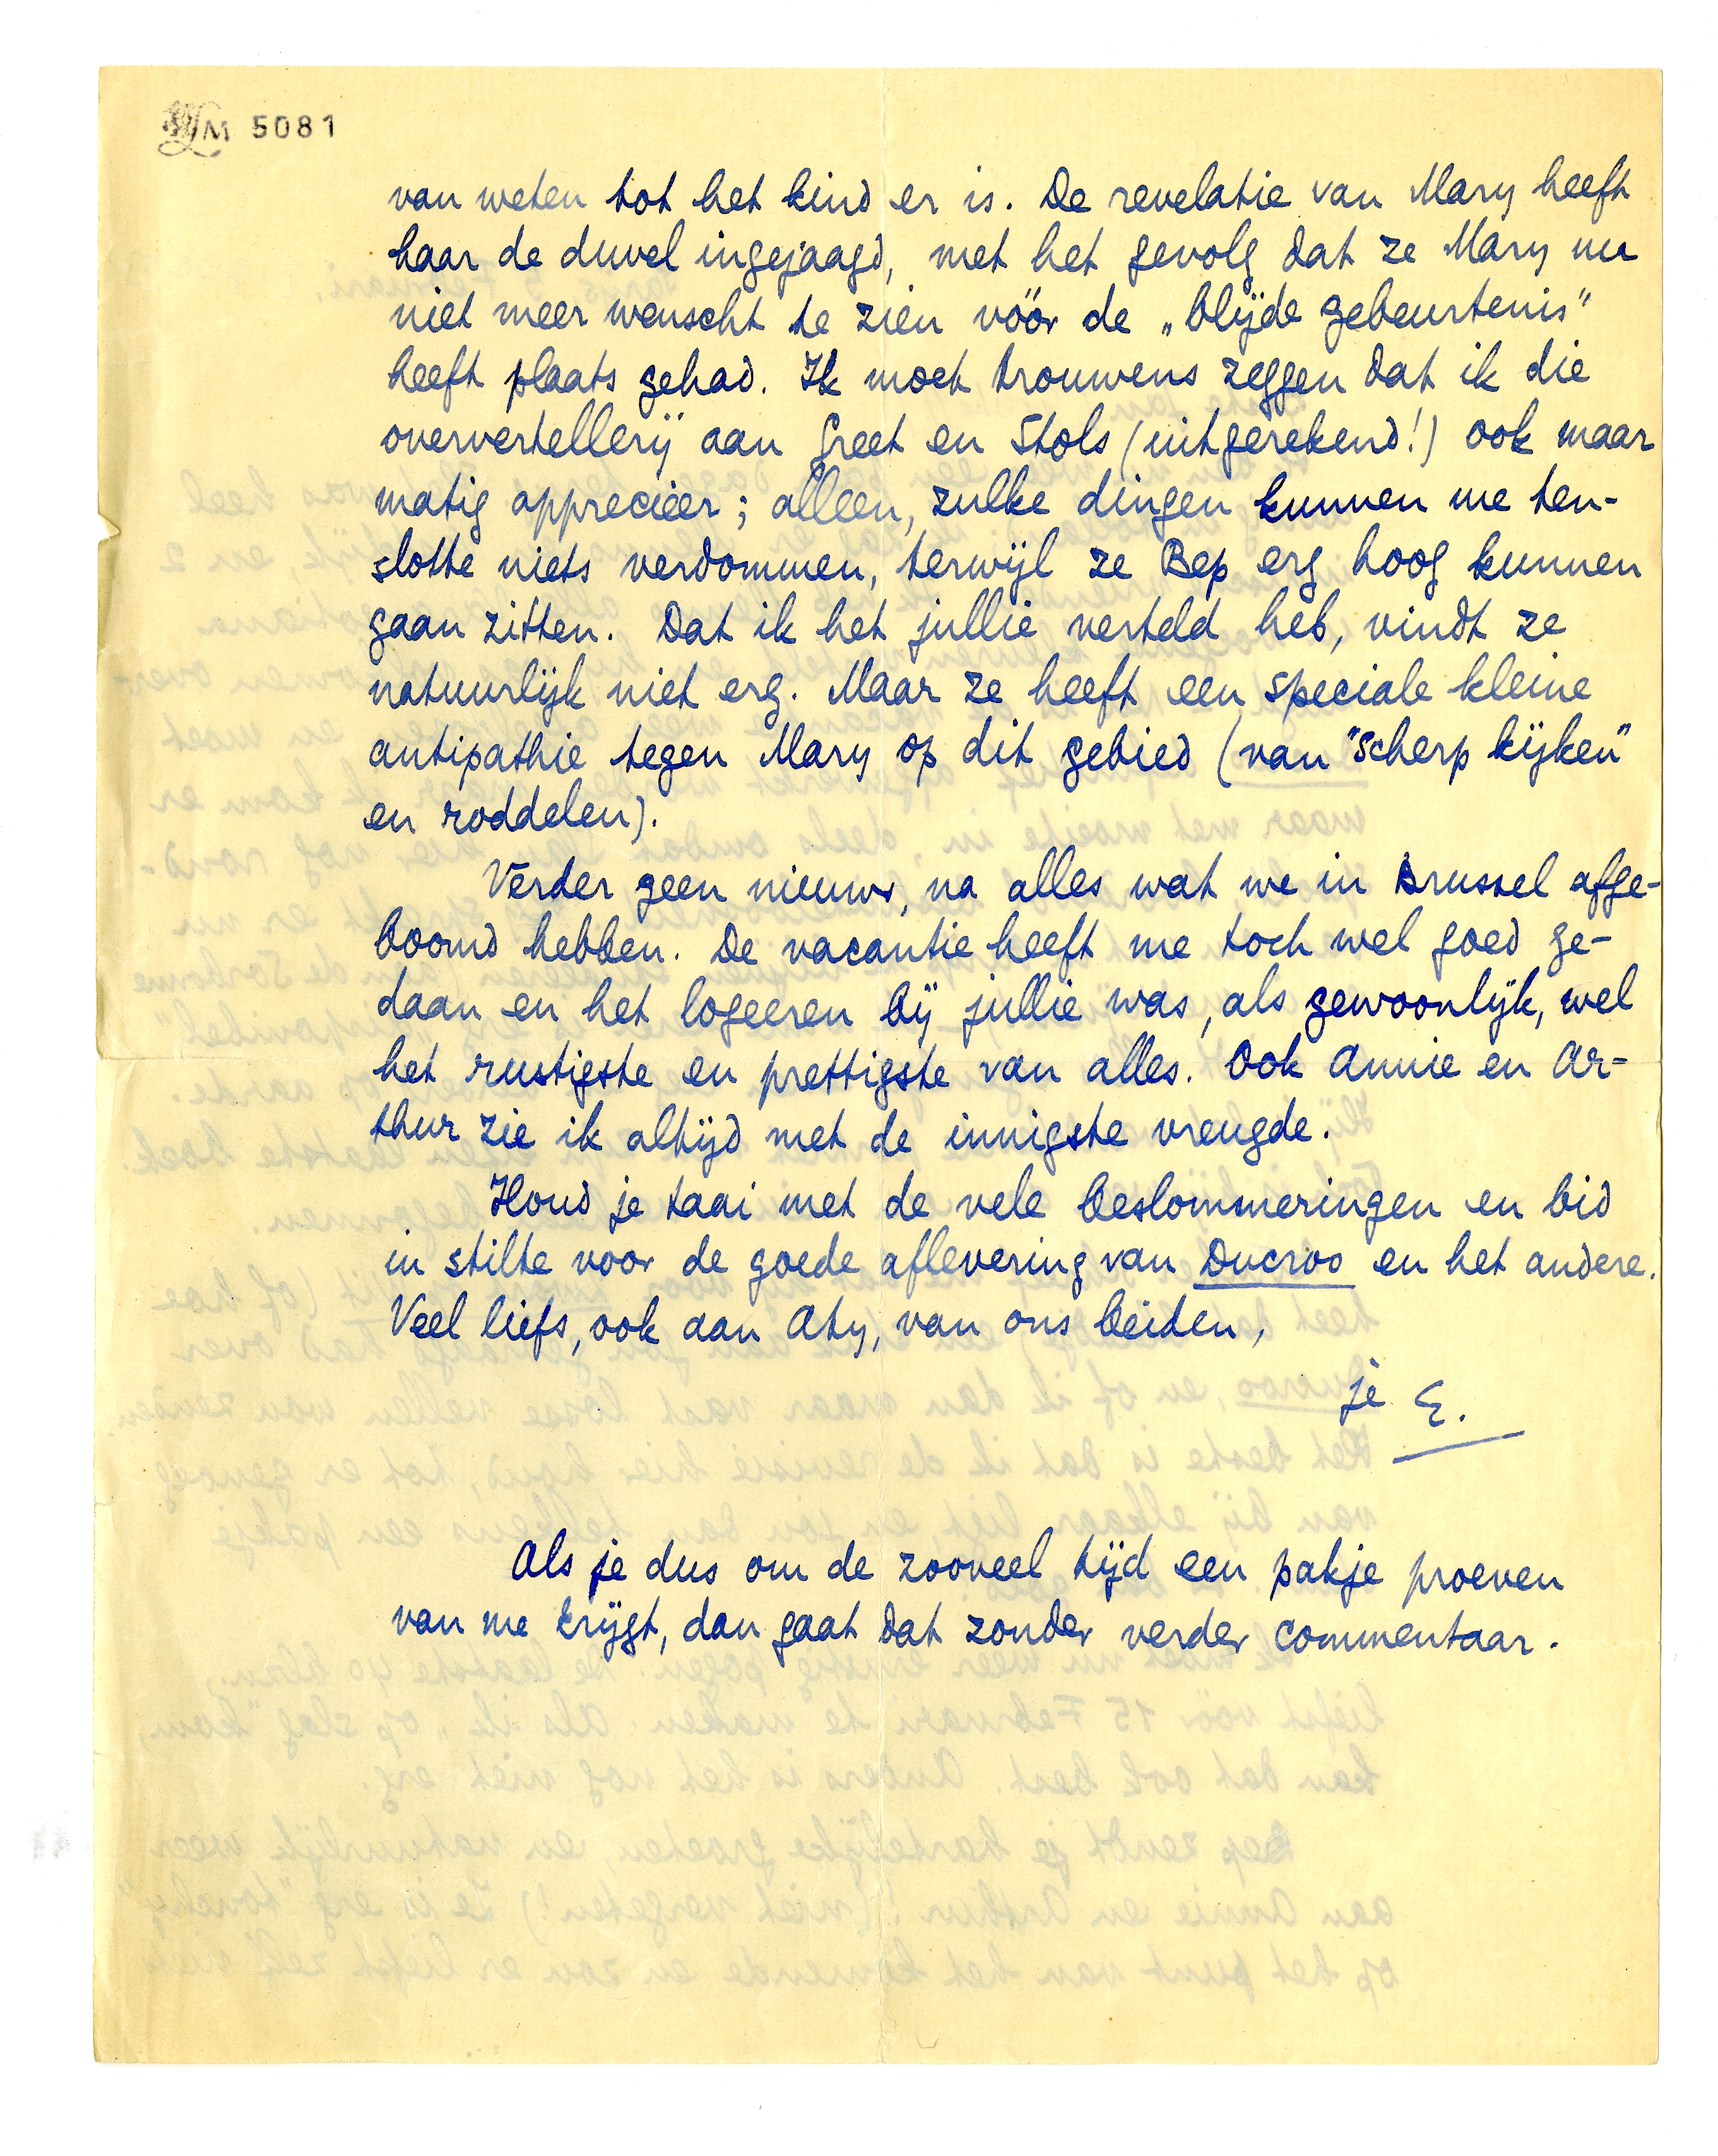 LM 5081
van weten tot het kind er is. De revelatie van Mary heeft
haar de duvel ingejaagd, met het gevolg dat ze Mary nu
niet meer wenscht te zien vóór de „blijde gebeurtenis"
heeft plaats gehad. Ik moet trouwens zeggen dat ik die
oververtellerij aan Greet en Stols (uitgerekend!) ook maar
matig apprecieer; alleen, zulke dingen kunnen me ten-
slotte niets verdommen, terwijl ze Bep erg hoog kunnen
gaan zitten. Dat ik het jullie verteld heb, vindt ze
natuurlijk niet erg. Maar ze heeft een speciale kleine
antipathie tegen Mary op dit gebied (van "scherp kijken"
en roddelen).
Verder geen nieuws, na alles wat we in Brussel afge-
boomd hebben. De vacantie heeft me toch wel goed ge-
daan en het logeeren bij jullie was, als gewoonlijk, wel
het rustigste en prettigste van alles. Ook Annie en Ar-
thur zie ik altijd met de innigste vreugde.
Houd je taai met de vele beslommeringen en bid
in stilte voor de goede aflevering van Ducroo en het andere.
Veel liefs, ook aan Aty, van ons beiden,
je E.
Als je dus om de zooveel tijd een pakje proeven
van me krijgt, dan gaat dat zonder verder commentaar.